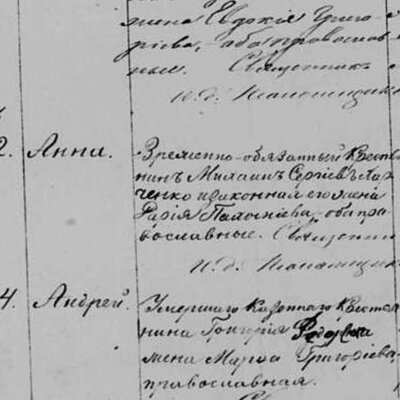 жена Евдокія Григо-
рієва, оба православ-
ные. Священник
и.д. Псаломщик
2. Анна. Временно-обязанный Кресть
нинъ Михаилъ Сергіевъ
ченко и законная его жена
Марія, оба пра-
вославные. Священник
И.д. Псаломщик
4. Андрей. Умершаго Казеннаго Крестя
нина Григорія
жена Марѳа Григорієва
православная.